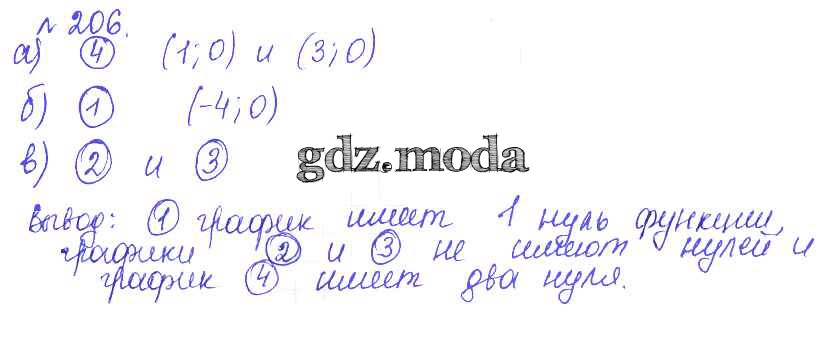 № 206.
а) ④ (1; 0) и (3; 0)
б) ① (-4; 0)
в) ② и ③
gdz.moda
Вывод: ① график имеет 1 нуль функции,
графики ② и ③ не имеют нулей и
график ④ имеет два нуля.